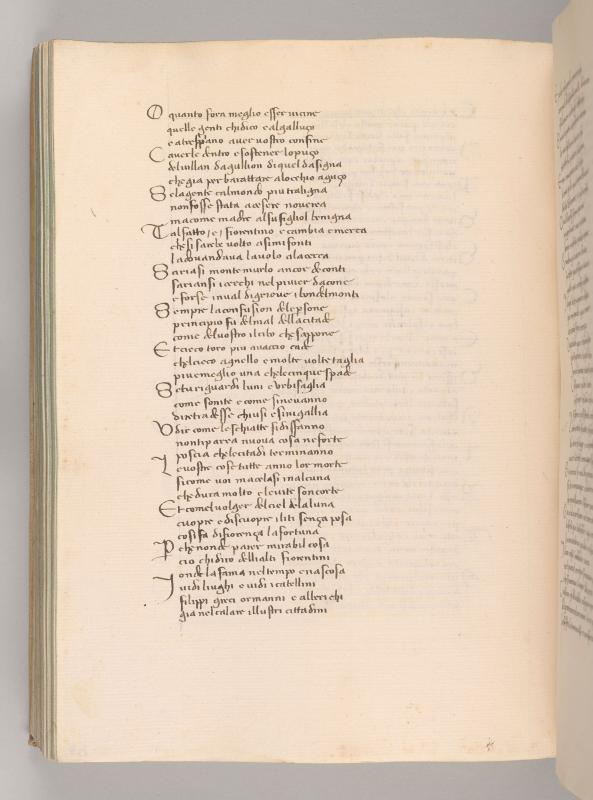 O quanto fora meglio esser uicine
quelle genti chidico e algalluço
e atrespiano auer uostro confine
C auerle dentro e sostener lopuço
deluillan dagullion di quel dasigna
che gia per barattare alochio aguço
S e la gente calmondo piu traligna
non fosse stata acesere nouerca
ma come madre alsu figliol benigna
T al fatto/e/ fiorentino e cambia e merca
che si sarebe uolto asimifonti
la doue andaua lauolo ala cerca
S ariasi montemurlo ancor de conti
sariansi icerchi nel piuier dacone
e forse inual digrieue ibondelmonti
S empre la confusion dele psone
principio fu del mal della citade
come del uostro il cibo che sappone
E t cieco toro piu auaccio cade
chel cieco agnello e molte uolte taglia
piu e meglio una chele cinque spade
S e tu riguardi luni e urbisaglia
come sonite e come sine uanno
diretra desse chiusi e sinigallia
V dir come le schiatte si disfanno
non ti parea nuoua cosa ne forte
poscia che le citadi terminanno
L e uostre cose tutte anno lor morte
si come uoi ma celasi in alcuna
che dura molto e le uite son corte
E t comel uolger del ciel dela luna
cuopre e discuopre iliti sença posa
cosi fa di fiorença la fortuna
P che non de parer mirabil cosa
cio chidiro dellialti fiorentini
onde la fama nel tempo e nascosa
I uidi liughi e uidi icatellini
filippi greci ormanni e alberichi
gia nel calare illustri cittadini